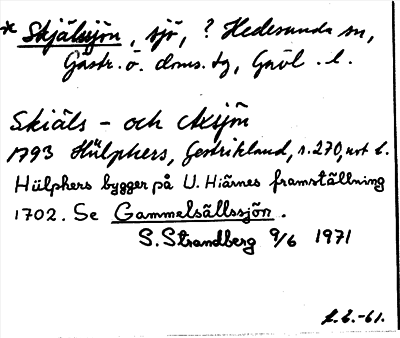 * Skjälssjön, sjö, ? Hedesunda sn,
Gästr. ö. doms. tg, Gävl. l.
Skiäls- och Axsjön
1793 Hülphers, Gestrikland, s. 270, urt l.
Hülphers bygger på U. Hiärnes framställning
1702. Se Gammelsällssjön.
S. Strandberg 9/6 1971